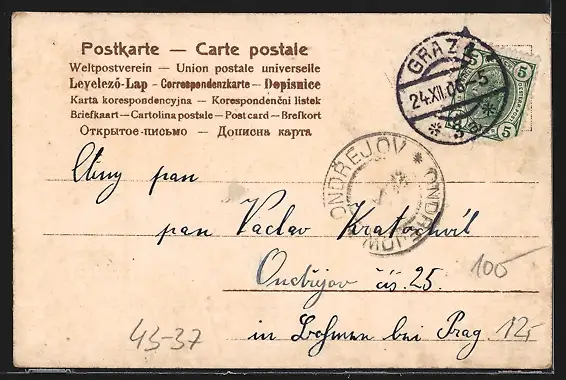 Postkarte — Carte postale
Weltpostverein — Union postale universelle
Levelező-Lap — Correspondenzkarte — Dopisnice
Karta korespondencyjna — Korespondenční listek
Briefkaart — Cartolina postale — Post card — Brefkort
Открытое письмо — Дописна карта
GRAZ
24.XII.06
5
5
5
ONDŘEJOV * ONDŘEJOV
Ctěný pan
pan Václav Kratochvíl
Ondřejov čís. 25.
in Bohmen bei Prag.
100
12,-
43-37